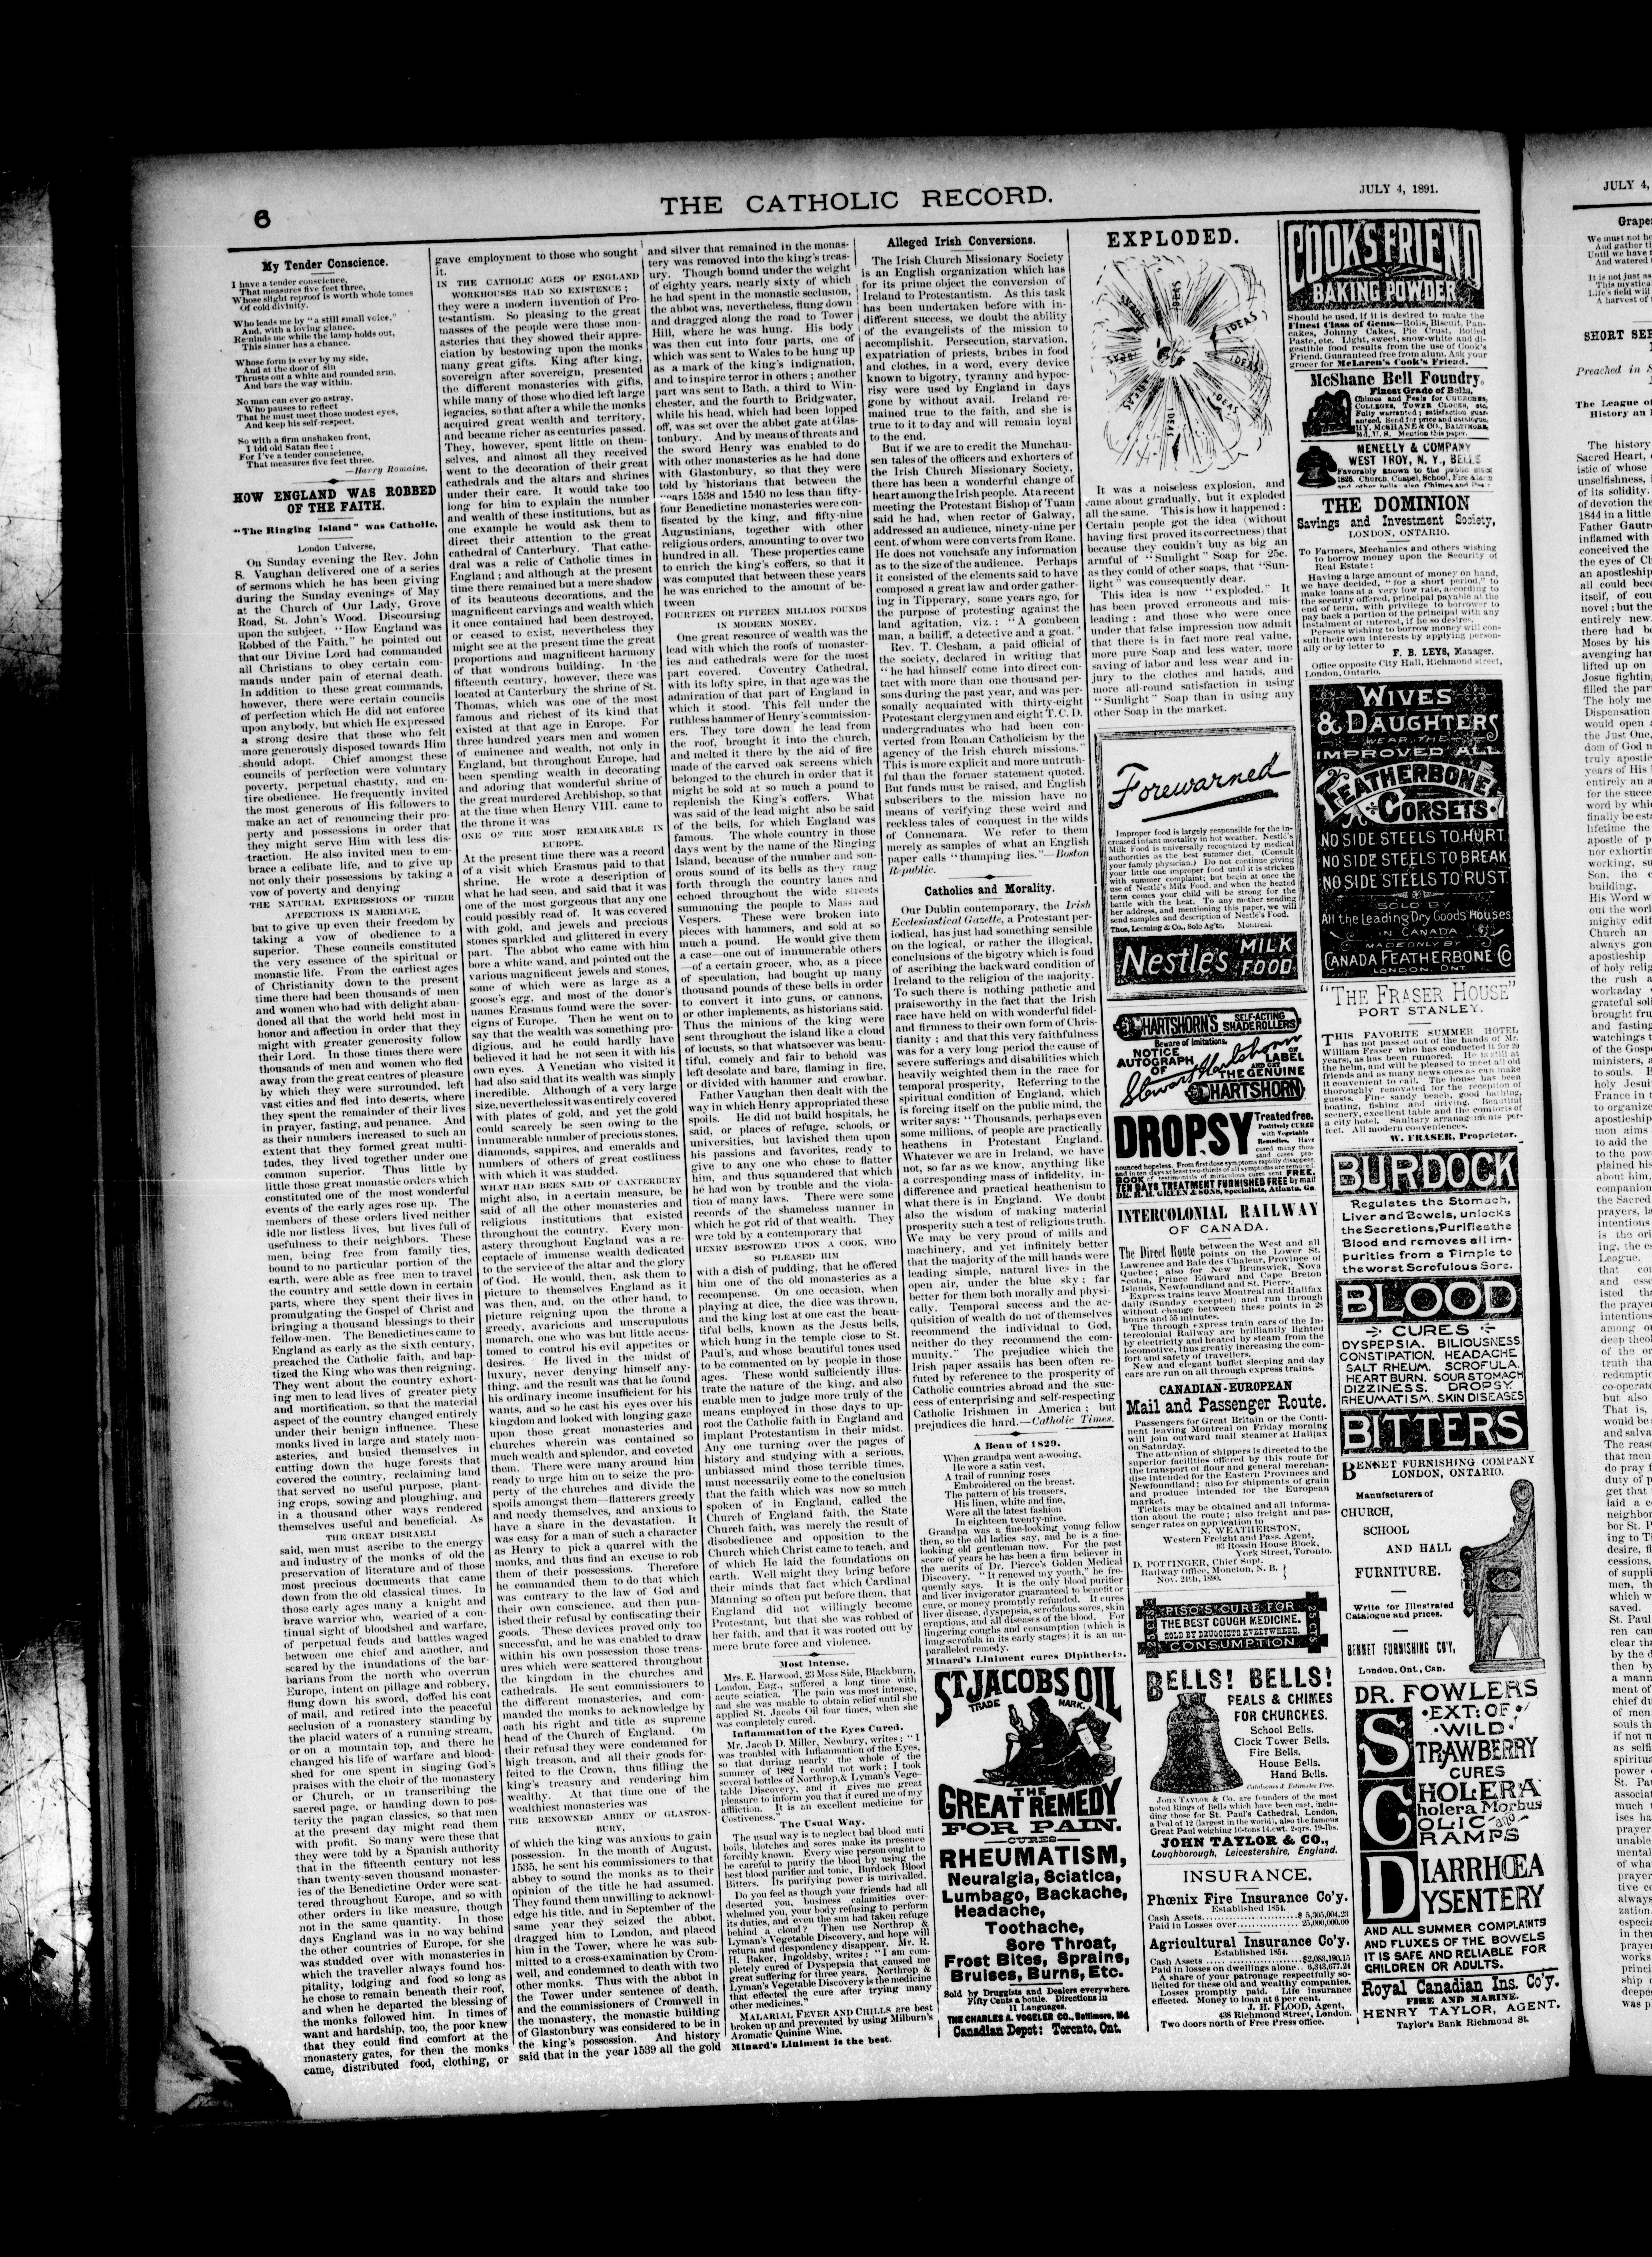 6
THE CATHOLIC RECORD.
JULY 4, 1891.
My Tender Conscience.
I have a tender conscience,
That measures five feet three,
Whose slight reproof is worth whole tomes
Of cold divinity.
Who leads me by "a still small voice,"
And, with a loving glance,
Reminds me while the lamp holds out,
This sinner has a chance.
Whose form is ever by my side,
And at the door of sin
Thrusts out a white and rounded arm,
And bars the way within.
No man can ever go astray,
Who pauses to reflect
That he must meet those modest eyes,
And keep his self-respect.
So with a firm unshaken front,
I bid old Satan flee;
For I've a tender conscience,
That measures five feet three.
—Harry Romaine.
HOW ENGLAND WAS ROBBED
OF THE FAITH.
"The Ringing Island" was Catholic.
London Universe,
On Sunday evening the Rev. John
S. Vaughan delivered one of a series
of sermons which he has been giving
during the Sunday evenings of May
at the Church of Our Lady, Grove
Road, St. John's Wood. Discoursing
upon the subject, "How England was
Robbed of the Faith," he pointed out
that our Divine Lord had commanded
all Christians to obey certain com-
mands under pain of eternal death.
In addition to these great commands,
however, there were certain councils
of perfection which He did not enforce
upon anybody, but which He expressed
a strong desire that those who felt
more generously disposed towards Him
should adopt. Chief amongst these
councils of perfection were voluntary
poverty, perpetual chastity, and en-
tire obedience. He frequently invited
the most generous of His followers to
make an act of renouncing their pro-
perty and possessions in order that
they might serve Him with less dis-
traction. He also invited men to em-
brace a celibate life, and to give up
not only their possessions by taking a
vow of poverty and denying
THE NATURAL EXPRESSIONS OF THEIR
AFFECTIONS IN MARRIAGE,
but to give up even their freedom by
taking a vow of obedience to a
superior. These councils constituted
the very essence of the spiritual or
monastic life. From the earliest ages
of Christianity down to the present
time there had been thousands of men
and women who had with delight aban-
doned all that the world held most in
honor and affection in order that they
might with greater generosity follow
their Lord. In those times there were
thousands of men and women who fled
away from the great centres of pleasure
by which they were surrounded, left
vast cities and fled into deserts, where
they spent the remainder of their lives
in prayer, fasting, and penance. And
as their numbers increased to such an
extent that they formed great multi-
tudes, they lived together under one
common superior. Thus little by
little those great monastic orders which
constituted one of the most wonderful
events of the early ages rose up. The
members of these orders lived neither
idle nor listless lives, but lives full of
usefulness to their neighbors. These
men, being free from family ties,
bound to no particular portion of the
earth, were able as free men to travel
the country and settle down in certain
parts, where they spent their lives in
promulgating the Gospel of Christ and
bringing a thousand blessings to their
fellow-men. The Benedictines came to
England as early as the sixth century,
preached the Catholic faith, and bap-
tized the King who was then reigning.
They went about the country exhort-
ing men to lead lives of greater piety
and mortification, so that the material
aspect of the country changed entirely
under their benign influence. These
monks lived in large and stately mon-
asteries, and busied themselves in
cutting down the huge forests that
covered the country, reclaiming land
that served no useful purpose, plant-
ing crops, sowing and ploughing, and
in a thousand other ways rendered
themselves useful and beneficial. As
THE GREAT DISRAELI
said, men must ascribe to the energy
and industry of the monks of old the
preservation of literature and of those
most precious documents that came
down from the old classical times. In
those early ages many a knight and
brave warrior who, wearied of a con-
tinual sight of bloodshed and warfare,
of perpetual feuds and battles waged
between one chief and another, and
scared by the inundations of the bar-
barians from the north who overrun
Europe, intent on pillage and robbery,
flung down his sword, doffed his coat
of mail, and retired into the peaceful
seclusion of a monastery standing by
the placid waters of a running stream,
or on a mountain top, and there he
changed his life of warfare and blood-
shed for one spent in singing God's
praises with the choir of the monastery
or Church, or in transcribing the
sacred page, or handing down to pos-
terity the pagan classics, so that men
at the present day might read them
with profit. So many were these that
they were told by a Spanish authority
that in the fifteenth century not less
than twenty-seven thousand monaster-
ies of the Benedictine Order were scat-
tered throughout Europe, and so with
other orders in like measure, though
not in the same quantity. In those
days England was in no way behind
the other countries of Europe, for she
was studded over with monasteries in
which the traveller always found hos-
pitality, lodging and food so long as
he chose to remain beneath their roof,
and when he departed the blessing of
the monks followed him. In times of
want and hardship, too, the poor knew
that they could find comfort at the
monastery gates, for then the monks
came, distributed food, clothing, or
gave employment to those who sought
it.
IN THE CATHOLIC AGES OF ENGLAND
WORKHOUSES HAD NO EXISTENCE;
they were a modern invention of Pro-
testantism. So pleasing to the great
masses of the people were those mon-
asteries that they showed their appre-
ciation by bestowing upon the monks
many great gifts. King after king,
sovereign after sovereign, presented
the different monasteries with gifts,
while many of those who died left large
legacies, so that after a while the monks
acquired great wealth and territory,
and became richer as centuries passed.
They, however, spent little on them-
selves, and almost all they received
went to the decoration of their great
cathedrals and the altars and shrines
under their care. It would take too
long for him to explain the number
and wealth of these institutions, but as
one example he would ask them to
direct their attention to the great
cathedral of Canterbury. That cathe-
dral was a relic of Catholic times in
England; and although at the present
time there remained but a mere shadow
of its beauteous decorations, and the
magnificent carvings and wealth which
it once contained had been destroyed,
or ceased to exist, nevertheless they
might see at the present time the great
proportions and magnificent harmony
of that wondrous building. In the
fifteenth century, however, there was
located at Canterbury the shrine of St.
Thomas, which was one of the most
famous and richest of its kind that
existed at that age in Europe. For
three hundred years men and women
of eminence and wealth, not only in
England, but throughout Europe, had
been spending wealth in decorating
and adoring that wonderful shrine of
the great murdered Archbishop, so that
at the time when Henry VIII. came to
the throne it was
ONE OF THE MOST REMARKABLE IN
EUROPE.
At the present time there was a record
of a visit which Erasmus paid to that
shrine. He wrote a description of
what he had seen, and said that it was
one of the most gorgeous that any one
could possibly read of. It was covered
with gold, and jewels and precious
stones sparkled and glittered in every
part. The abbot who came with him
bore a white wand, and pointed out the
various magnificent jewels and stones,
some of which were as large as a
goose's egg, and most of the donor's
names Erasmus found were the sover-
eigns of Europe. Then he went on to
say that the wealth was something pro-
digious, and he could hardly have
believed it had he not seen it with his
own eyes. A Venetian who visited it
had also said that its wealth was simply
incredible. Although of a very large
size, nevertheless it was entirely covered
with plates of gold, and yet the gold
could scarcely be seen owing to the
innumerable number of precious stones,
diamonds, sappires, and emeralds and
numbers of others of great costliness
with which it was studded.
WHAT HAD BEEN SAID OF CANTERBURY
might also, in a certain measure, be
said of all the other monasteries and
religious institutions that existed
throughout the country. Every mon-
astery throughout England was a re-
ceptacle of immense wealth dedicated
to the service of the altar and the glory
of God. He would, then, ask them to
picture to themselves England as it
was then, and, on the other hand, to
picture reigning upon the throne a
greedy, avaricious and unscrupulous
monarch, one who was but little accus-
tomed to control his evil appetites or
desires. He lived in the midst of
luxury, never denying himself any-
thing, and the result was that he found
his ordinary income insufficient for his
wants, and so he cast his eyes over his
kingdom and looked with longing gaze
upon those great monasteries and
churches wherein was contained so
much wealth and splendor, and coveted
them. There were many around him
ready to urge him on to seize the pro-
perty of the churches and divide the
spoils amongst them—flatterers greedy
and needy themselves, and anxious to
have a share in the devastation. It
was easy for a man of such a character
as Henry to pick a quarrel with the
monks, and thus find an excuse to rob
them of their possessions. Therefore
he commanded them to do that which
was contrary to the law of God and
their own conscience, and then pun-
ished their refusal by confiscating their
goods. These devices proved only too
successful, and he was enabled to draw
within his own possession those treas-
ures which were scattered throughout
the kingdom in the churches and
cathedrals. He sent commissioners to
the different monasteries, and com-
manded the monks to acknowledge by
oath his right and title as supreme
head of the Church of England. On
their refusal they were condemned for
high treason, and all their goods for-
feited to the Crown, thus filling the
king's treasury and rendering him
wealthy. At that time one of the
wealthiest monasteries was
THE RENOWNED ABBEY OF GLASTON-
BURY,
of which the king was anxious to gain
possession. In the month of August,
1535, he sent his commissioners to that
abbey to sound the monks as to their
opinion of the title he had assumed.
They found them unwilling to acknowl-
edge his title, and in September of the
same year they seized the abbot,
dragged him to London, and placed
him in the Tower, where he was sub-
mitted to a cross-examination by Crom-
well, and condemned to death with two
other monks. Thus with the abbot in
the Tower under sentence of death,
and the commissioners of Cromwell in
the monastery, the monastic building
of Glastonbury was considered to be in
the king's possession. And history
said that in the year 1539 all the gold
and silver that remained in the monas-
tery was removed into the king's treas-
ury. Though bound under the weight
of eighty years, nearly sixty of which
he had spent in the monastic seclusion,
the abbot was, nevertheless, flung down
and dragged along the road to Tower
Hill, where he was hung. His body
was then cut into four parts, one of
which was sent to Wales to be hung up
as a mark of the king's indignation,
and to inspire terror in others; another
part was sent to Bath, a third to Win-
chester, and the fourth to Bridgwater,
while his head, which had been lopped
off, was set over the abbet gate at Glas-
tonbury. And by means of threats and
the sword Henry was enabled to do
with other monasteries as he had done
with Glastonbury, so that they were
told by historians that between the
years 1538 and 1540 no less than fifty-
four Benedictine monasteries were con-
fiscated by the king, and fifty-nine
Augustinians, together with other
religious orders, amounting to over two
hundred in all. These properties came
to enrich the king's coffers, so that it
was computed that between these years
he was enriched to the amount of be-
tween
FOURTEEN OR FIFTEEN MILLION POUNDS
IN MODERN MONEY.
One great resource of wealth was the
lead with which the roofs of monaster-
ies and cathedrals were for the most
part covered. Coventry Cathedral,
with its lofty spire, in that age was the
admiration of that part of England in
which it stood. This fell under the
ruthless hammer of Henry's commission-
ers. They tore down the lead from
the roof, brought it into the church,
and melted it there by the aid of fire
made of the carved oak screens which
belonged to the church in order that it
might be sold at so much a pound to
replenish the King's coffers. What
was said of the lead might also be said
of the bells, for which England was
famous. The whole country in those
days went by the name of the Ringing
Island, because of the number and son-
orous sound of its bells as they rang
forth through the country lanes and
echoed throughout the wide streets
summoning the people to Mass and
Vespers. These were broken into
pieces with hammers, and sold at so
much a pound. He would give them
a case—one out of innumerable others
—of a certain grocer, who, as a piece
of speculation, had bought up many
thousand pounds of these bells in order
to convert it into guns, or cannons,
or other implements, as historians said.
Thus the minions of the king were
sent throughout the island like a cloud
of locusts, so that whatsoever was beau-
tiful, comely and fair to behold was
left desolate and bare, flaming in fire,
or divided with hammer and crowbar.
Father Vaughan then dealt with the
way in which Henry appropriated these
spoils. He did not build hospitals, he
said, or places of refuge, schools, or
universities, but lavished them upon
his passions and favorites, ready to
give to any one who chose to flatter
him, and thus squandered that which
he had won by trouble and the viola-
tion of many laws. There were some
records of the shameless manner in
which he got rid of that wealth. They
wre told by a contemporary that
HENRY BESTOWED UPON A COOK, WHO
SO PLEASED HIM
with a dish of pudding, that he offered
him one of the old monasteries as a
recompense. On one occasion, when
playing at dice, the dice was thrown,
and the king lost at one cast the beau-
tiful bells, known as the Jesus bells,
which hung in the temple close to St.
Paul's, and whose beautiful tones used
to be commented on by people in those
ages. These would sufficiently illus-
trate the nature of the king, and also
enable men to judge more truly of the
means employed in those days to up-
root the Catholic faith in England and
implant Protestantism in their midst.
Any one turning over the pages of
history and studying with a serious,
unbiassed mind those terrible times,
must necessarily come to the conclusion
that the faith which was now so much
spoken of in England, called the
Church of England faith, the State
Church faith, was merely the result of
disobedience and opposition to the
Church which Christ came to teach, and
of which He laid the foundations on
earth. Well might they bring before
their minds that fact which Cardinal
Manning so often put before them, that
England did not willingly become
Protestant, but that she was robbed of
her faith, and that it was rooted out by
mere brute force and violence.
Most Intense.
Mrs. E. Harwood, 23 Moss Side, Blackburn,
London, Eng., suffered a long time with
acute sciatica. The pain was most intense,
and she was unable to obtain relief until she
applied St. Jacobs Oil four times, when she
was completely cured.
Inflammation of the Eyes Cured.
Mr. Jacob D. Miller, Newbury, writes: "I
was troubled with Inflammation of the Eyes,
so that during nearly the whole of the
summer of 1882 I could not work; I took
several bottles of Northrop & Lyman's Vege-
table Discovery, and it gives me great
pleasure to inform you that it cured me of my
affliction. It is an excellent medicine for
Costiveness."
The Usual Way.
The usual way is to neglect bad blood until
boils, blotches and sores make its presence
forcibly known. Every wise person ought to
be careful to purify the blood by using the
best blood purifier and tonic, Burdock Blood
Bitters. Its purifying power is unrivalled.
Do you feel as though your friends had all
deserted you, business calamities over-
whelmed you, your body refusing to perform
its duties, and even the sun had taken refuge
behind a cloud? Then use Northrop &
Lyman's Vegetable Discovery, and hope will
return and despondency disappear. Mr. R.
H. Baker, Ingoldsby, writes: "I am com-
pletely cured of Dyspepsia that caused me
great suffering for three years. Northrop &
Lyman's Vegetable Discovery is the medicine
that effected the cure after trying many
other medicines."
MALARIAL FEVER AND CHILLS are best
broken up and prevented by using Milburn's
Aromatic Quinine Wine.
Minard's Liniment is the best.
Alleged Irish Conversions.
The Irish Church Missionary Society
is an English organization which has
for its prime object the conversion of
Ireland to Protestantism. As this task
has been undertaken before with in-
different success, we doubt the ability
of the evangelists of the mission to
accomplish it. Persecution, starvation,
expatriation of priests, bribes in food
and clothes, in a word, every device
known to bigotry, tyranny and hypoc-
risy were used by England in days
gone by without avail. Ireland re-
mained true to the faith, and she is
true to it to day and will remain loyal
to the end.
But if we are to credit the Munchau-
sen tales of the officers and exhorters of
the Irish Church Missionary Society,
there has been a wonderful change of
heart among the Irish people. At a recent
meeting the Protestant Bishop of Tuam
said he had, when rector of Galway,
addressed an audience, ninety-nine per
cent. of whom were converts from Rome.
He does not vouchsafe any information
as to the size of the audience. Perhaps
it consisted of the elements said to have
composed a great law and order gather-
ing in Tipperary, some years ago, for
the purpose of protesting against the
land agitation, viz.: "A gombeen
man, a bailiff, a detective and a goat."
Rev. T. Clesham, a paid official of
the society, declared in writing that
"he had himself come into direct con-
tact with more than one thousand per-
sons during the past year, and was per-
sonally acquainted with thirty-eight
Protestant clergymen and eight T. C. D.
undergraduates who had been con-
verted from Roman Catholicism by the
agency of the Irish church missions."
This is more explicit and more untruth-
ful than the former statement quoted.
But funds must be raised, and English
subscribers to the mission have no
means of verifying these weird and
reckless tales of conquest in the wilds
of Connemara. We refer to them
merely as samples of what an English
paper calls "thumping lies."—Boston
Republic.
Catholics and Morality.
Our Dublin contemporary, the Irish
Ecclesiastical Gazette, a Protestant per-
iodical, has just had something sensible
on the logical, or rather the illogical,
conclusions of the bigotry which is fond
of ascribing the backward condition of
Ireland to the religion of the majority.
To such there is nothing pathetic and
praiseworthy in the fact that the Irish
race have held on with wonderful fidel-
and firmness to their own form of Chris-
tianity; and that this very faithfulness
was for a very long period the cause of
severe sufferings and disabilities which
heavily weighted them in the race for
temporal prosperity. Referring to the
spiritual condition of England, which
is forcing itself on the public mind, the
writer says: "Thousands, perhaps even
some millions, of people are practically
heathens in Protestant England.
Whatever we are in Ireland, we have
not, so far as we know, anything like
a corresponding mass of infidelity, in-
difference and practical heathenism to
what there is in England. We doubt
also the wisdom of making material
prosperity such a test of religious truth.
We may be very proud of mills and
machinery, and yet infinitely better
that the majority of the mill hands were
leading simple, natural lives in the
open air, under the blue sky; far
better for them both morally and physi-
cally. Temporal success and the ac-
quisition of wealth do not of themselves
recommend the individual to God,
neither do they recommend the com-
munity." The prejudice which the
Irish paper assails has been often re-
futed by reference to the prosperity of
Catholic countries abroad and the suc-
cess of enterprising and self-respecting
Catholic Irishmen in America; but
prejudices die hard.—Catholic Times.
A Beau of 1829.
When grandpa went a-wooing,
He wore a satin vest,
A trail of running roses
Embroidered on the breast.
The pattern of his trousers,
His linen, white and fine,
Were all the latest fashion
In eighteen twenty-nine.
Grandpa was a fine-looking young fellow
then, so the old ladies say, and he is a fine-
looking old gentleman now. For the past
score of years he has been a firm believer in
the merits of Dr. Pierce's Golden Medical
Discovery. "It renewed my youth," he fre-
quently says. It is the only blood purifier
and liver invigorator guaranteed to benefit or
cure, or money promptly refunded. It cures
liver disease, dyspepsia, scrofulous sores, skin
eruptions, and all diseases of the blood. For
lingering coughs and consumption (which is
lung-scrofula in its early stages) it is an un-
paralleled remedy.
Minard's Liniment cures Diphtheria.
ST. JACOBS OIL
TRADE MARK.
THE
GREAT REMEDY
FOR PAIN.
CURES
RHEUMATISM,
Neuralgia, Sciatica,
Lumbago, Backache,
Headache,
Toothache,
Sore Throat,
Frost Bites, Sprains,
Bruises, Burns, Etc.
Sold by Druggists and Dealers everywhere.
Fifty Cents a bottle. Directions in
11 Languages.
THE CHARLES A. VOGELER CO., Baltimore, Md.
Canadian Depot: Toronto, Ont.
EXPLODED.
IDEAS
IDEAS
IDEAS
IDEAS
IDEAS
IDEAS
It was a noiseless explosion, and
came about gradually, but it exploded
all the same. This is how it happened:
Certain people got the idea (without
having first proved its correctness) that
because they couldn't buy as big an
armful of "Sunlight" Soap for 25c.
as they could of other soaps, that "Sun-
light" was consequently dear.
This idea is now "exploded." It
has been proved erroneous and mis-
leading; and those who were once
under that false impression now admit
that there is in fact more real value,
more pure Soap and less water, more
saving of labor and less wear and in-
jury to the clothes and hands, and
more all-round satisfaction in using
"Sunlight" Soap than in using any
other Soap in the market.
Forewarned
Improper food is largely responsible for the in-
creased infant mortality in hot weather. Nestlé's
Milk Food is universally recognized by medical
authorities as the best summer diet. (Consult
your family physician.) Do not continue giving
your little one improper food until it is stricken
with summer complaint; but begin at once the
use of Nestlé's Milk Food, and when the heated
term comes your child will be strong for the
battle with the heat. To any mother sending
her address, and mentioning this paper, we will
send samples and description of Nestlé's Food.
Thos. Leeming & Co., Sole Ag'ts, Montreal.
Nestlé's MILK FOOD
HARTSHORN'S SELF-ACTING SHADE ROLLERS
Beware of Imitations.
NOTICE
AUTOGRAPH
OF
Stewart Hartshorn
ON
LABEL
AND GET
THE GENUINE
HARTSHORN
DROPSY
Treated free.
Positively CURED
with Vegetable
Remedies. Have
cured many thou-
sand cases pro-
nounced hopeless. From first dose symptoms rapidly disappear,
and in ten days at least two-thirds of all symptoms are removed.
BOOK of testimonials of miraculous cures sent FREE.
TEN DAYS TREATMENT FURNISHED FREE by mail
DR. H. H. GREEN & SONS, Specialists, Atlanta, Ga.
INTERCOLONIAL RAILWAY
OF CANADA.
The Direct Route between the West and all
points on the Lower St.
Lawrence and Baie des Chaleur, Province of
Quebec; also for New Brunswick, Nova
Scotia, Prince Edward and Cape Breton
Islands, Newfoundland and St. Pierre.
Express trains leave Montreal and Halifax
daily (Sunday excepted) and run through
without change between these points in 28
hours and 55 minutes.
The through express train cars of the In-
tercolonial Railway are brilliantly lighted
by electricity and heated by steam from the
locomotive, thus greatly increasing the com-
fort and safety of travellers.
New and elegant buffet sleeping and day
cars are run on all through express trains.
CANADIAN-EUROPEAN
Mail and Passenger Route.
Passengers for Great Britain or the Conti-
nent leaving Montreal on Friday morning
will join outward mail steamer at Halifax
on Saturday.
The attention of shippers is directed to the
superior facilities offered by this route for
the transport of flour and general merchan-
dise intended for the Eastern Provinces and
Newfoundland; also for shipments of grain
and produce intended for the European
market.
Tickets may be obtained and all informa-
tion about the route; also freight and pas-
senger rates on application to
N. WEATHERSTON,
Western Freight and Pass. Agent,
93 Rossin House Block,
York Street, Toronto.
D. POTTINGER, Chief Supt.
Railway Office, Moncton, N. B.
Nov. 24th, 1890.
25 CTS
PISO'S CURE FOR
THE BEST COUGH MEDICINE.
SOLD BY DRUGGISTS EVERYWHERE.
CONSUMPTION
25 CTS
BELLS! BELLS!
PEALS & CHIMES
FOR CHURCHES.
School Bells.
Clock Tower Bells.
Fire Bells.
House Bells.
Hand Bells.
Catalogues & Estimates Free.
JOHN TAYLOR & Co. are founders of the most
noted Rings of Bells which have been cast, inclu-
ding those for St. Paul's Cathedral, London,
a Peal of 12 (largest in the world), also the famous
Great Paul weighing 16-tons 14-cwt. 2-qrs. 19-lbs.
JOHN TAYLOR & CO.,
Loughborough, Leicestershire, England.
INSURANCE.
Phœnix Fire Insurance Co'y.
Established 1854.
Cash Assets........$ 5,305,004.23
Paid in Losses over........25,000,000.00
Agricultural Insurance Co'y.
Established 1854.
Cash Assets........$2,083,190.15
Paid in losses on dwellings alone.. 6,343,677.24
A share of your patronage respectfully so-
licited for these old and wealthy companies.
Losses promptly paid. Life insurance
effected. Money to loan at 6 per cent.
J. H. FLOOD, Agent,
438 Richmond Street, London.
Two doors north of Free Press office.
COOK'S FRIEND
BAKING POWDER
Should be used, if it is desired to make the
Finest Class of Gems—Rolls, Biscuit, Pan-
cakes, Johnny Cakes, Pie Crust, Boiled
Paste, etc. Light, sweet, snow-white and di-
gestible food results from the use of Cook's
Friend. Guaranteed free from alum. Ask your
grocer for McLaren's Cook's Friend.
McShane Bell Foundry.
Finest Grade of Bells,
Chimes and Peals for CHURCHES,
COLLEGES, TOWER CLOCKS, etc.
Fully warranted; satisfaction guar-
anteed. Send for price and catalogue.
HY. McSHANE & CO., BALTIMORE,
Md., U. S. Mention this paper.
MENEELY & COMPANY
WEST TROY, N. Y., BELLS
Favorably known to the public since
1826. Church, Chapel, School, Fire Alarm
and other bells; also Chimes and Peals
THE DOMINION
Savings and Investment Society,
LONDON, ONTARIO.
To Farmers, Mechanics and others wishing
to borrow money upon the Security of
Real Estate:
Having a large amount of money on hand,
we have decided, "for a short period," to
make loans at a very low rate, according to
the security offered, principal payable at the
end of term, with privilege to borrower to
pay back a portion of the principal with any
instalment of interest, if he so desires.
Persons wishing to borrow money will con-
sult their own interests by applying person-
ally or by letter to
F. B. LEYS, Manager.
Office opposite City Hall, Richmond street,
London, Ontario.
WIVES
& DAUGHTERS
WEAR THE
IMPROVED ALL
FEATHERBONE
CORSETS
NO SIDE STEELS TO HURT
NO SIDE STEELS TO BREAK
NO SIDE STEELS TO RUST
SOLD BY
All the Leading Dry Goods Houses
IN CANADA
MADE ONLY BY
CANADA FEATHERBONE CO
LONDON, ONT.
"THE FRASER HOUSE"
PORT STANLEY.
THIS FAVORITE SUMMER HOTEL
has not passed out of the hands of Mr.
William Fraser who has conducted it for 20
years, as has been rumored. He is still at
the helm, and will be pleased to meet all old
friends and as many news ones as can make
it convenient to call. The house has been
thoroughly renovated for the reception of
guests. Fine sandy beach, good bathing,
boating, fishing and driving. Beautiful
scenery, excellent table and the comforts of
a city hotel. Sanitary arrangements per-
fect. All modern conveniences.
W. FRASER, Proprietor.
BURDOCK
Regulates the Stomach,
Liver and Bowels, unlocks
the Secretions, Purifies the
Blood and removes all im-
purities from a Pimple to
the worst Scrofulous Sore.
BLOOD
CURES
DYSPEPSIA. BILIOUSNESS
CONSTIPATION. HEADACHE
SALT RHEUM. SCROFULA.
HEART BURN. SOUR STOMACH
DIZZINESS. DROPSY.
RHEUMATISM. SKIN DISEASES
BITTERS
BENNET FURNISHING COMPANY
LONDON, ONTARIO.
Manufacturers of
CHURCH,
SCHOOL
AND HALL
FURNITURE.
Write for Illustrated
Catalogue and prices.
BENNET FURNISHING CO'Y,
London, Ont., Can.
DR. FOWLERS
EXT: OF
WILD
STRAWBERRY
CURES
CHOLERA
Cholera Morbus
COLIC AND
CRAMPS
DIARRHŒA
DYSENTERY
AND ALL SUMMER COMPLAINTS
AND FLUXES OF THE BOWELS
IT IS SAFE AND RELIABLE FOR
CHILDREN OR ADULTS.
Royal Canadian Ins. Co'y.
FIRE AND MARINE.
HENRY TAYLOR, AGENT.
Taylor's Bank Richmond St.
JULY 4,